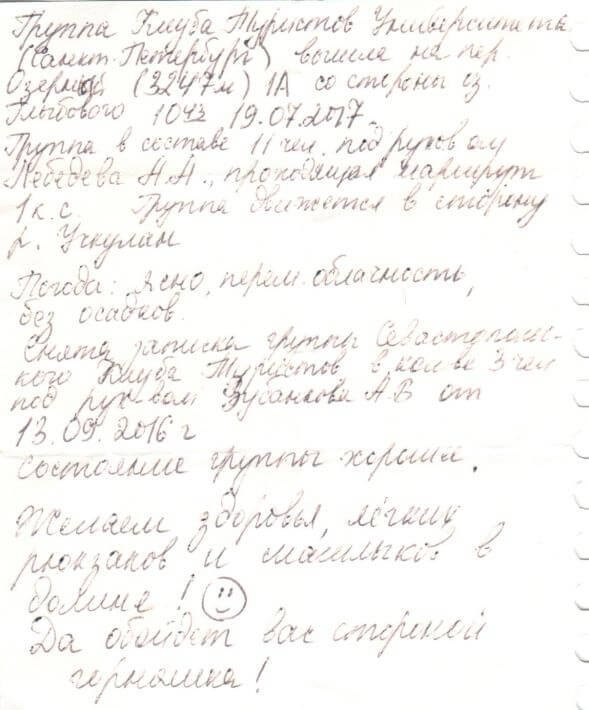 Группа Клуба Туристов Университета
(Санкт-Петербург) вышла на пер.
Озерный (3247м) 1А со стороны оз.
Глыбового 10 43 19.07.2017.
Группа в составе 11 чел. под руков ом
Лебедева А.А., проходящая маршрут
1 к.с. Группа движется в сторону
р. Учкулан
Погода: ясно, перем. облачность,
без осадков.
Снята записка группы Севастополь-
кого Клуба Туристов в кол-ве 3 чел
под рук-вом А.В от
13.09.2016 г
Состояние группы хорошее.
Желаем здоровья, лёгких
рюкзаков и в
долине!
Да обойдет вас стороной
горняшка!